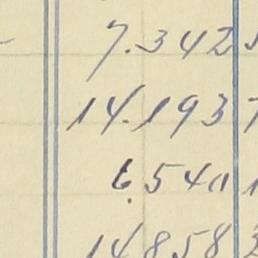 7.342
14.193
6.540
14.858